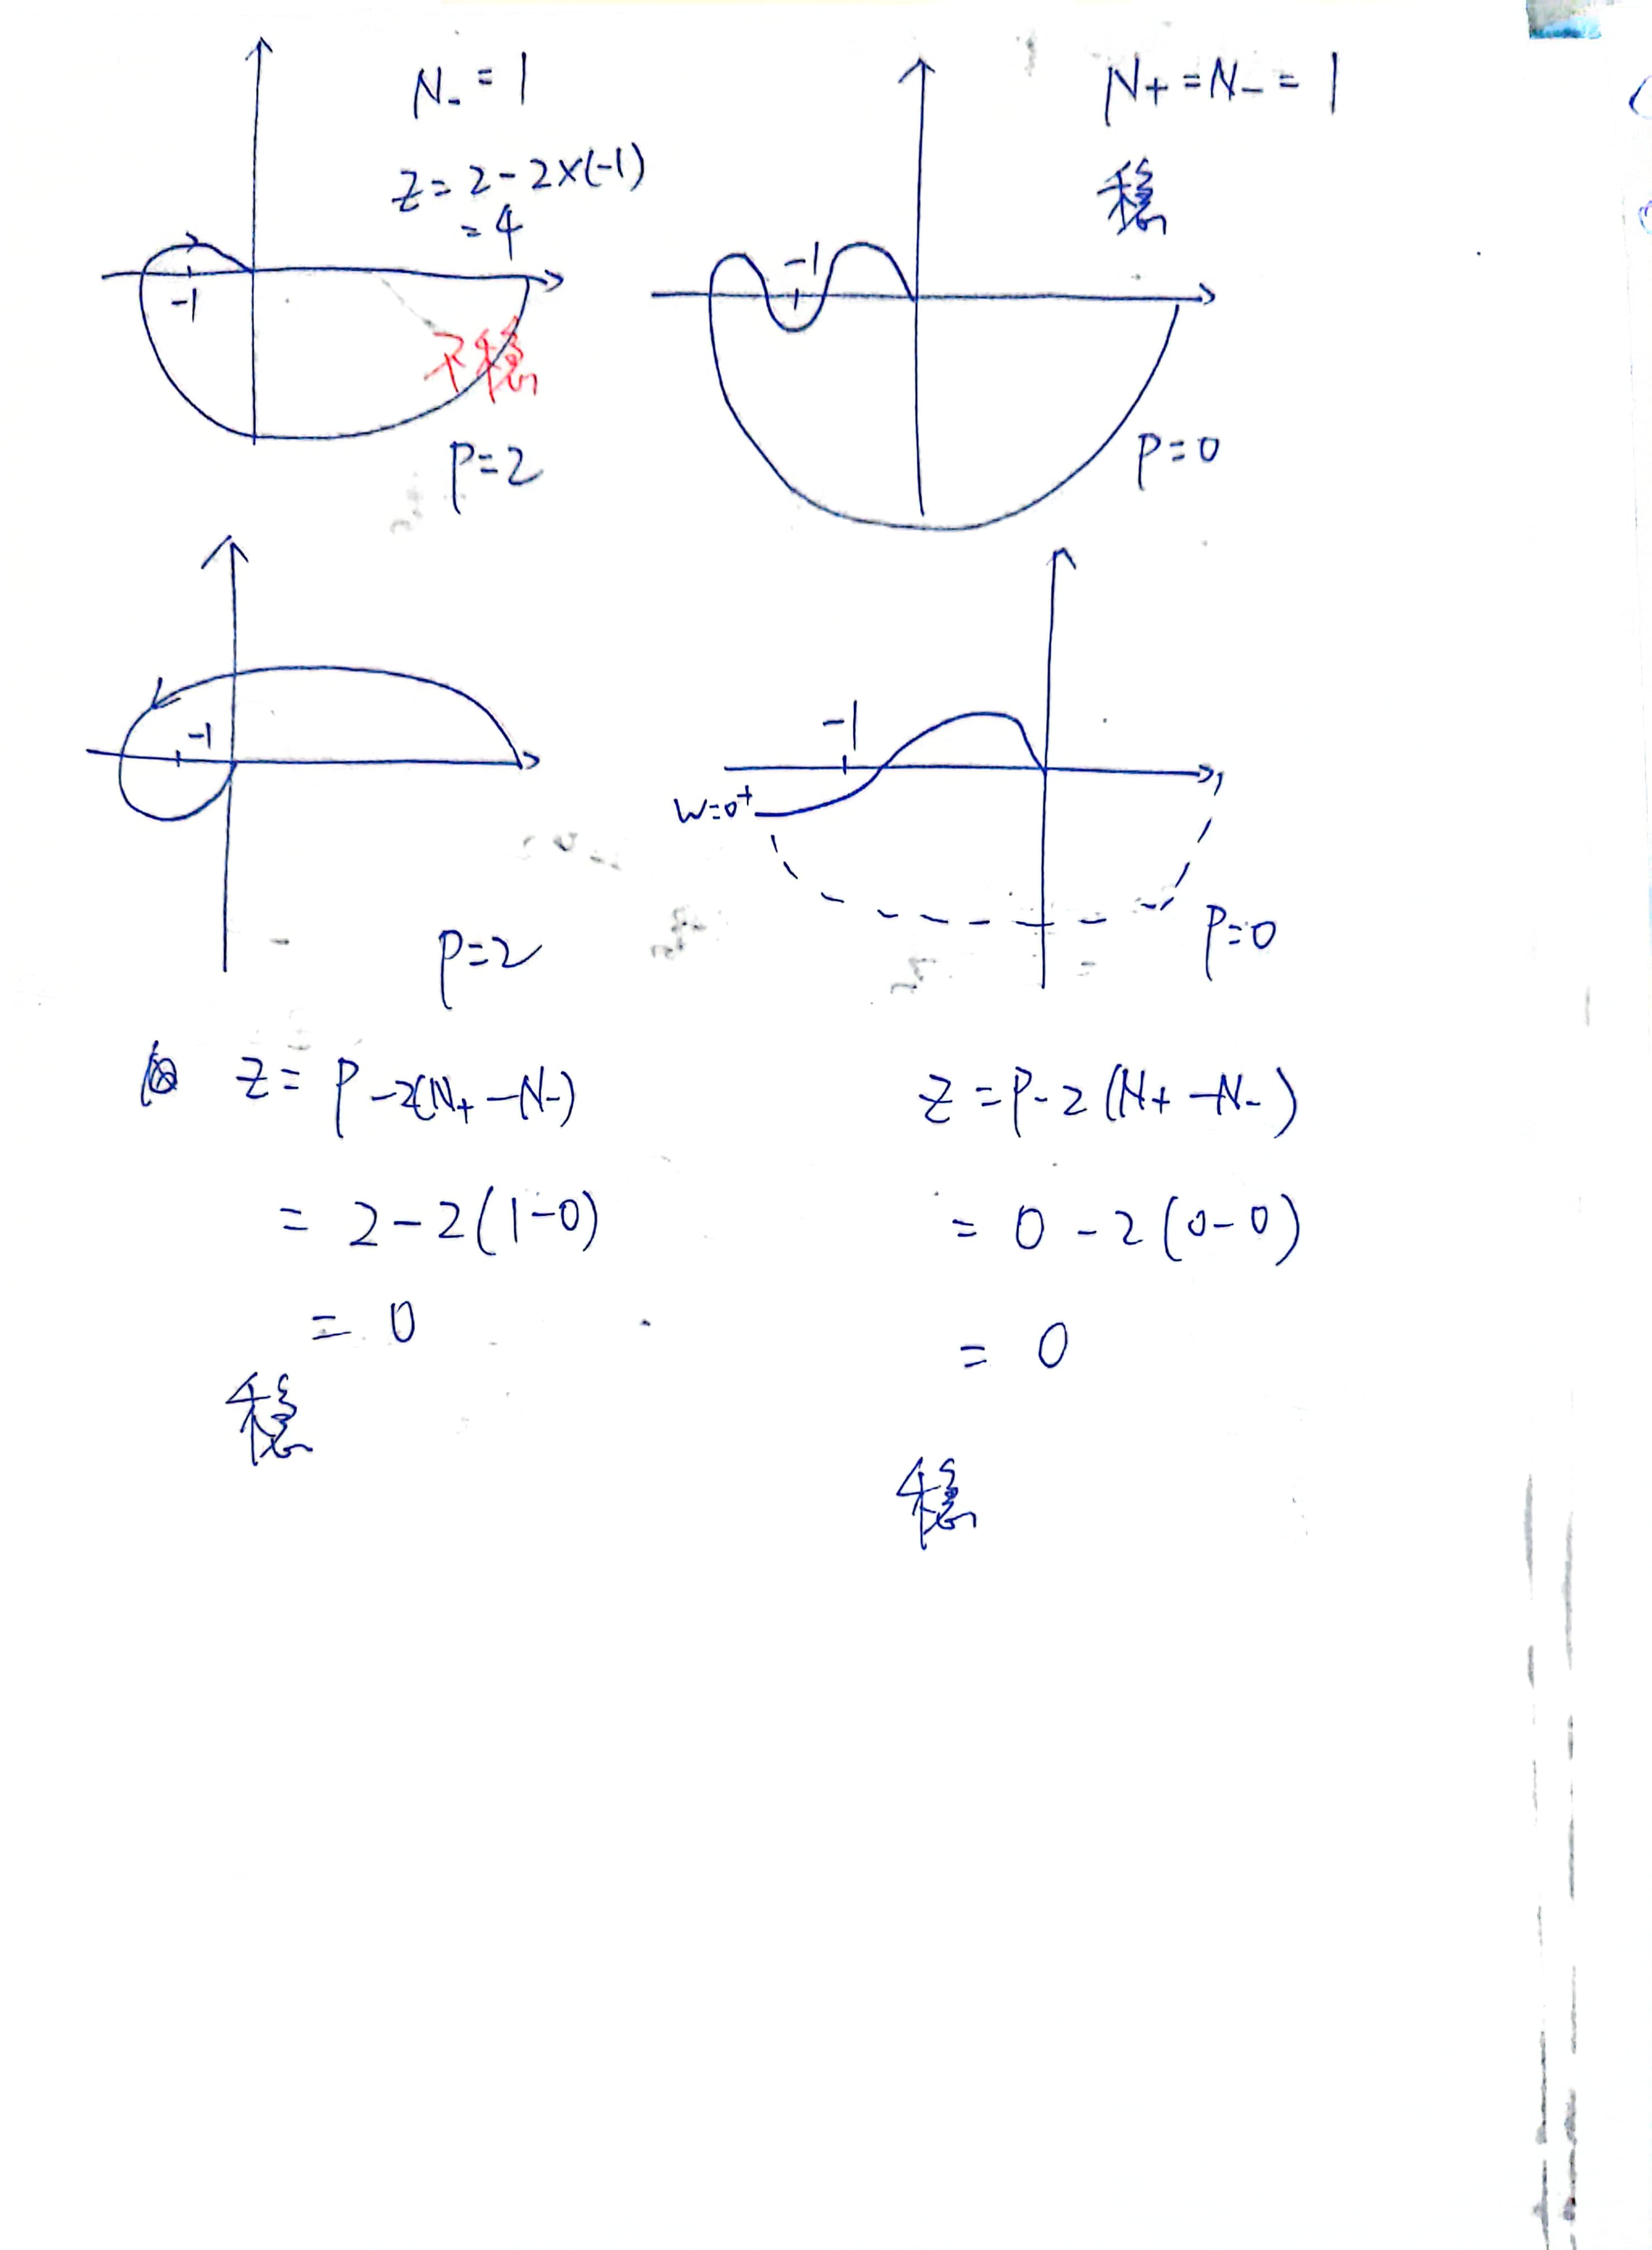 N₋ = 1
Z = 2 - 2×(-1)
= 4
-1
不稳
P=2
N+ = N- = 1
稳
-1
P=0
-1
P=2
-1
W=0⁺
P=0
Z = P - 2(N+ - N-)
= 2 - 2(1-0)
= 0
稳
Z = P - 2(N+ - N-)
= 0 - 2(0-0)
= 0
稳